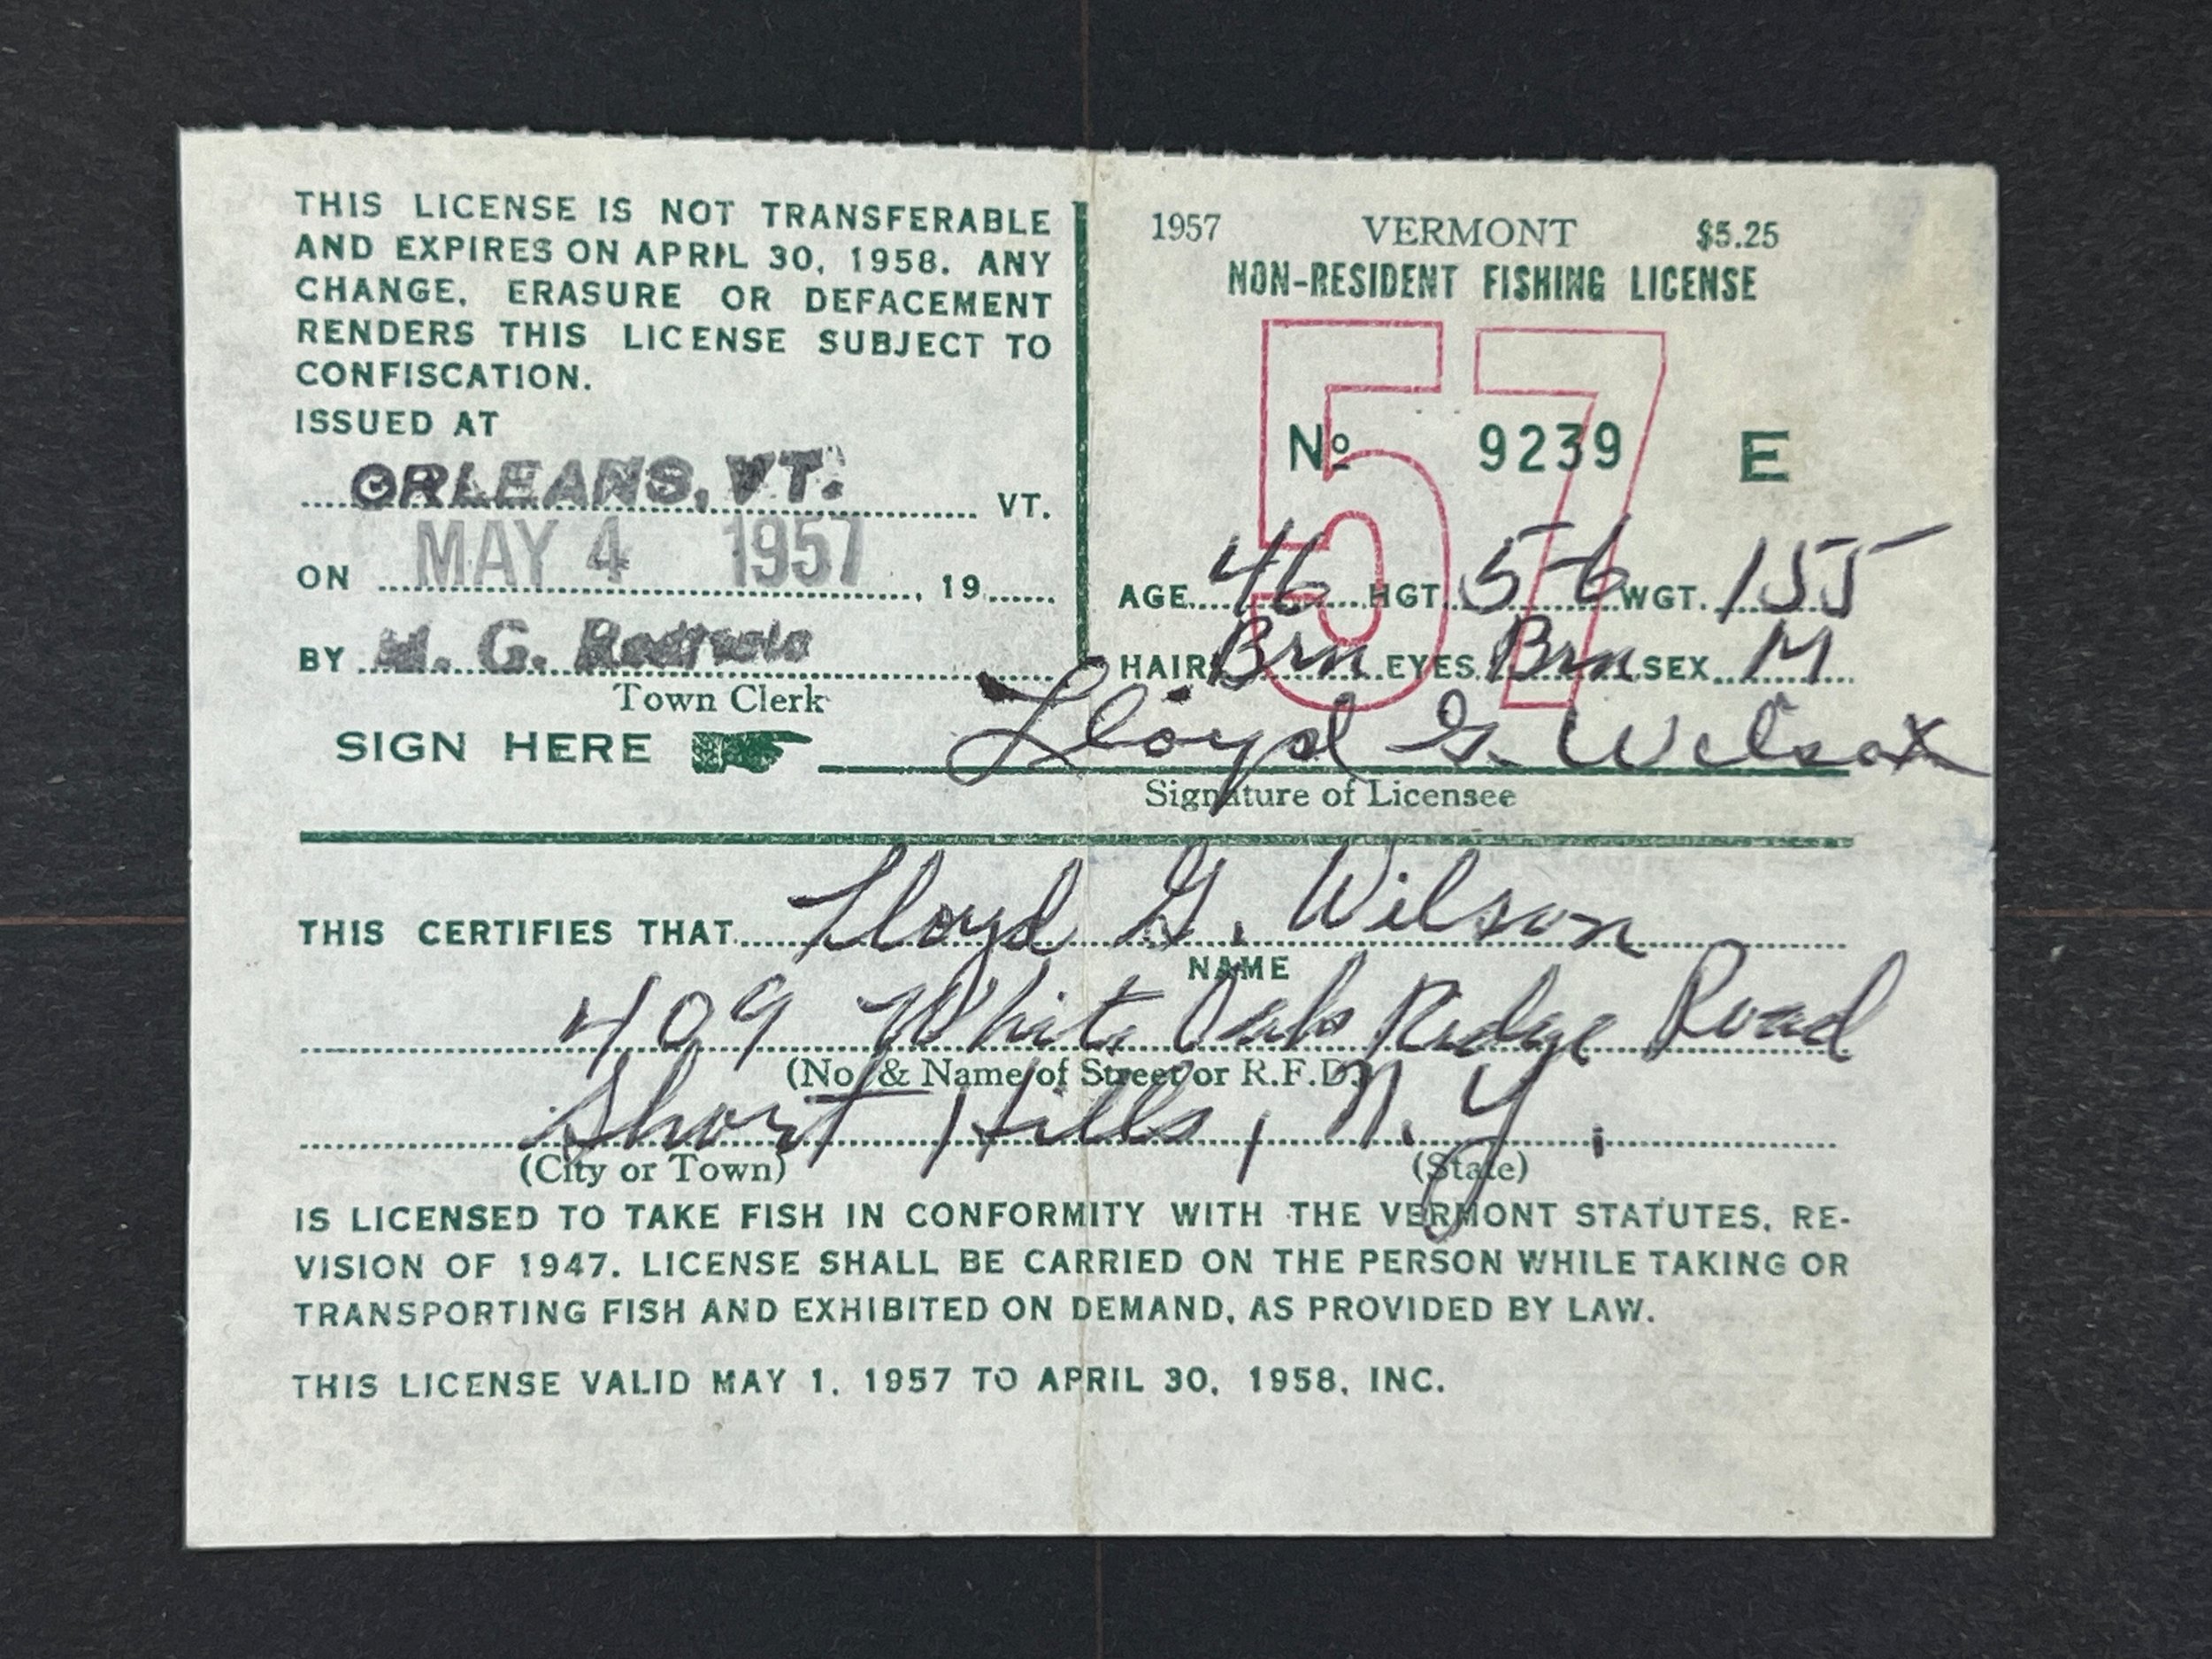 THIS LICENSE IS NOT TRANSFERABLE
AND EXPIRES ON APRIL 30, 1958. ANY
CHANGE, ERASURE OR DEFACEMENT
RENDERS THIS LICENSE SUBJECT TO
CONFISCATION.
ISSUED AT
ORLEANS, VT. VT.
ON MAY 4 1957, 19
BY M. G.
Town Clerk
1957 VERMONT $5.25
NON-RESIDENT FISHING LICENSE
57
No 9239 E
AGE 46 HGT. 5-6 WGT. 155
HAIR Brn EYES Brn SEX M
SIGN HERE Lloyd G. Wilson
Signature of Licensee
THIS CERTIFIES THAT Lloyd G. Wilson
NAME
409 White Oak Ridge Road
(No. & Name of Street or R.F.D.)
Short Hills, N.Y.
(City or Town) (State)
IS LICENSED TO TAKE FISH IN CONFORMITY WITH THE VERMONT STATUTES, RE-
VISION OF 1947. LICENSE SHALL BE CARRIED ON THE PERSON WHILE TAKING OR
TRANSPORTING FISH AND EXHIBITED ON DEMAND, AS PROVIDED BY LAW.
THIS LICENSE VALID MAY 1, 1957 TO APRIL 30, 1958, INC.